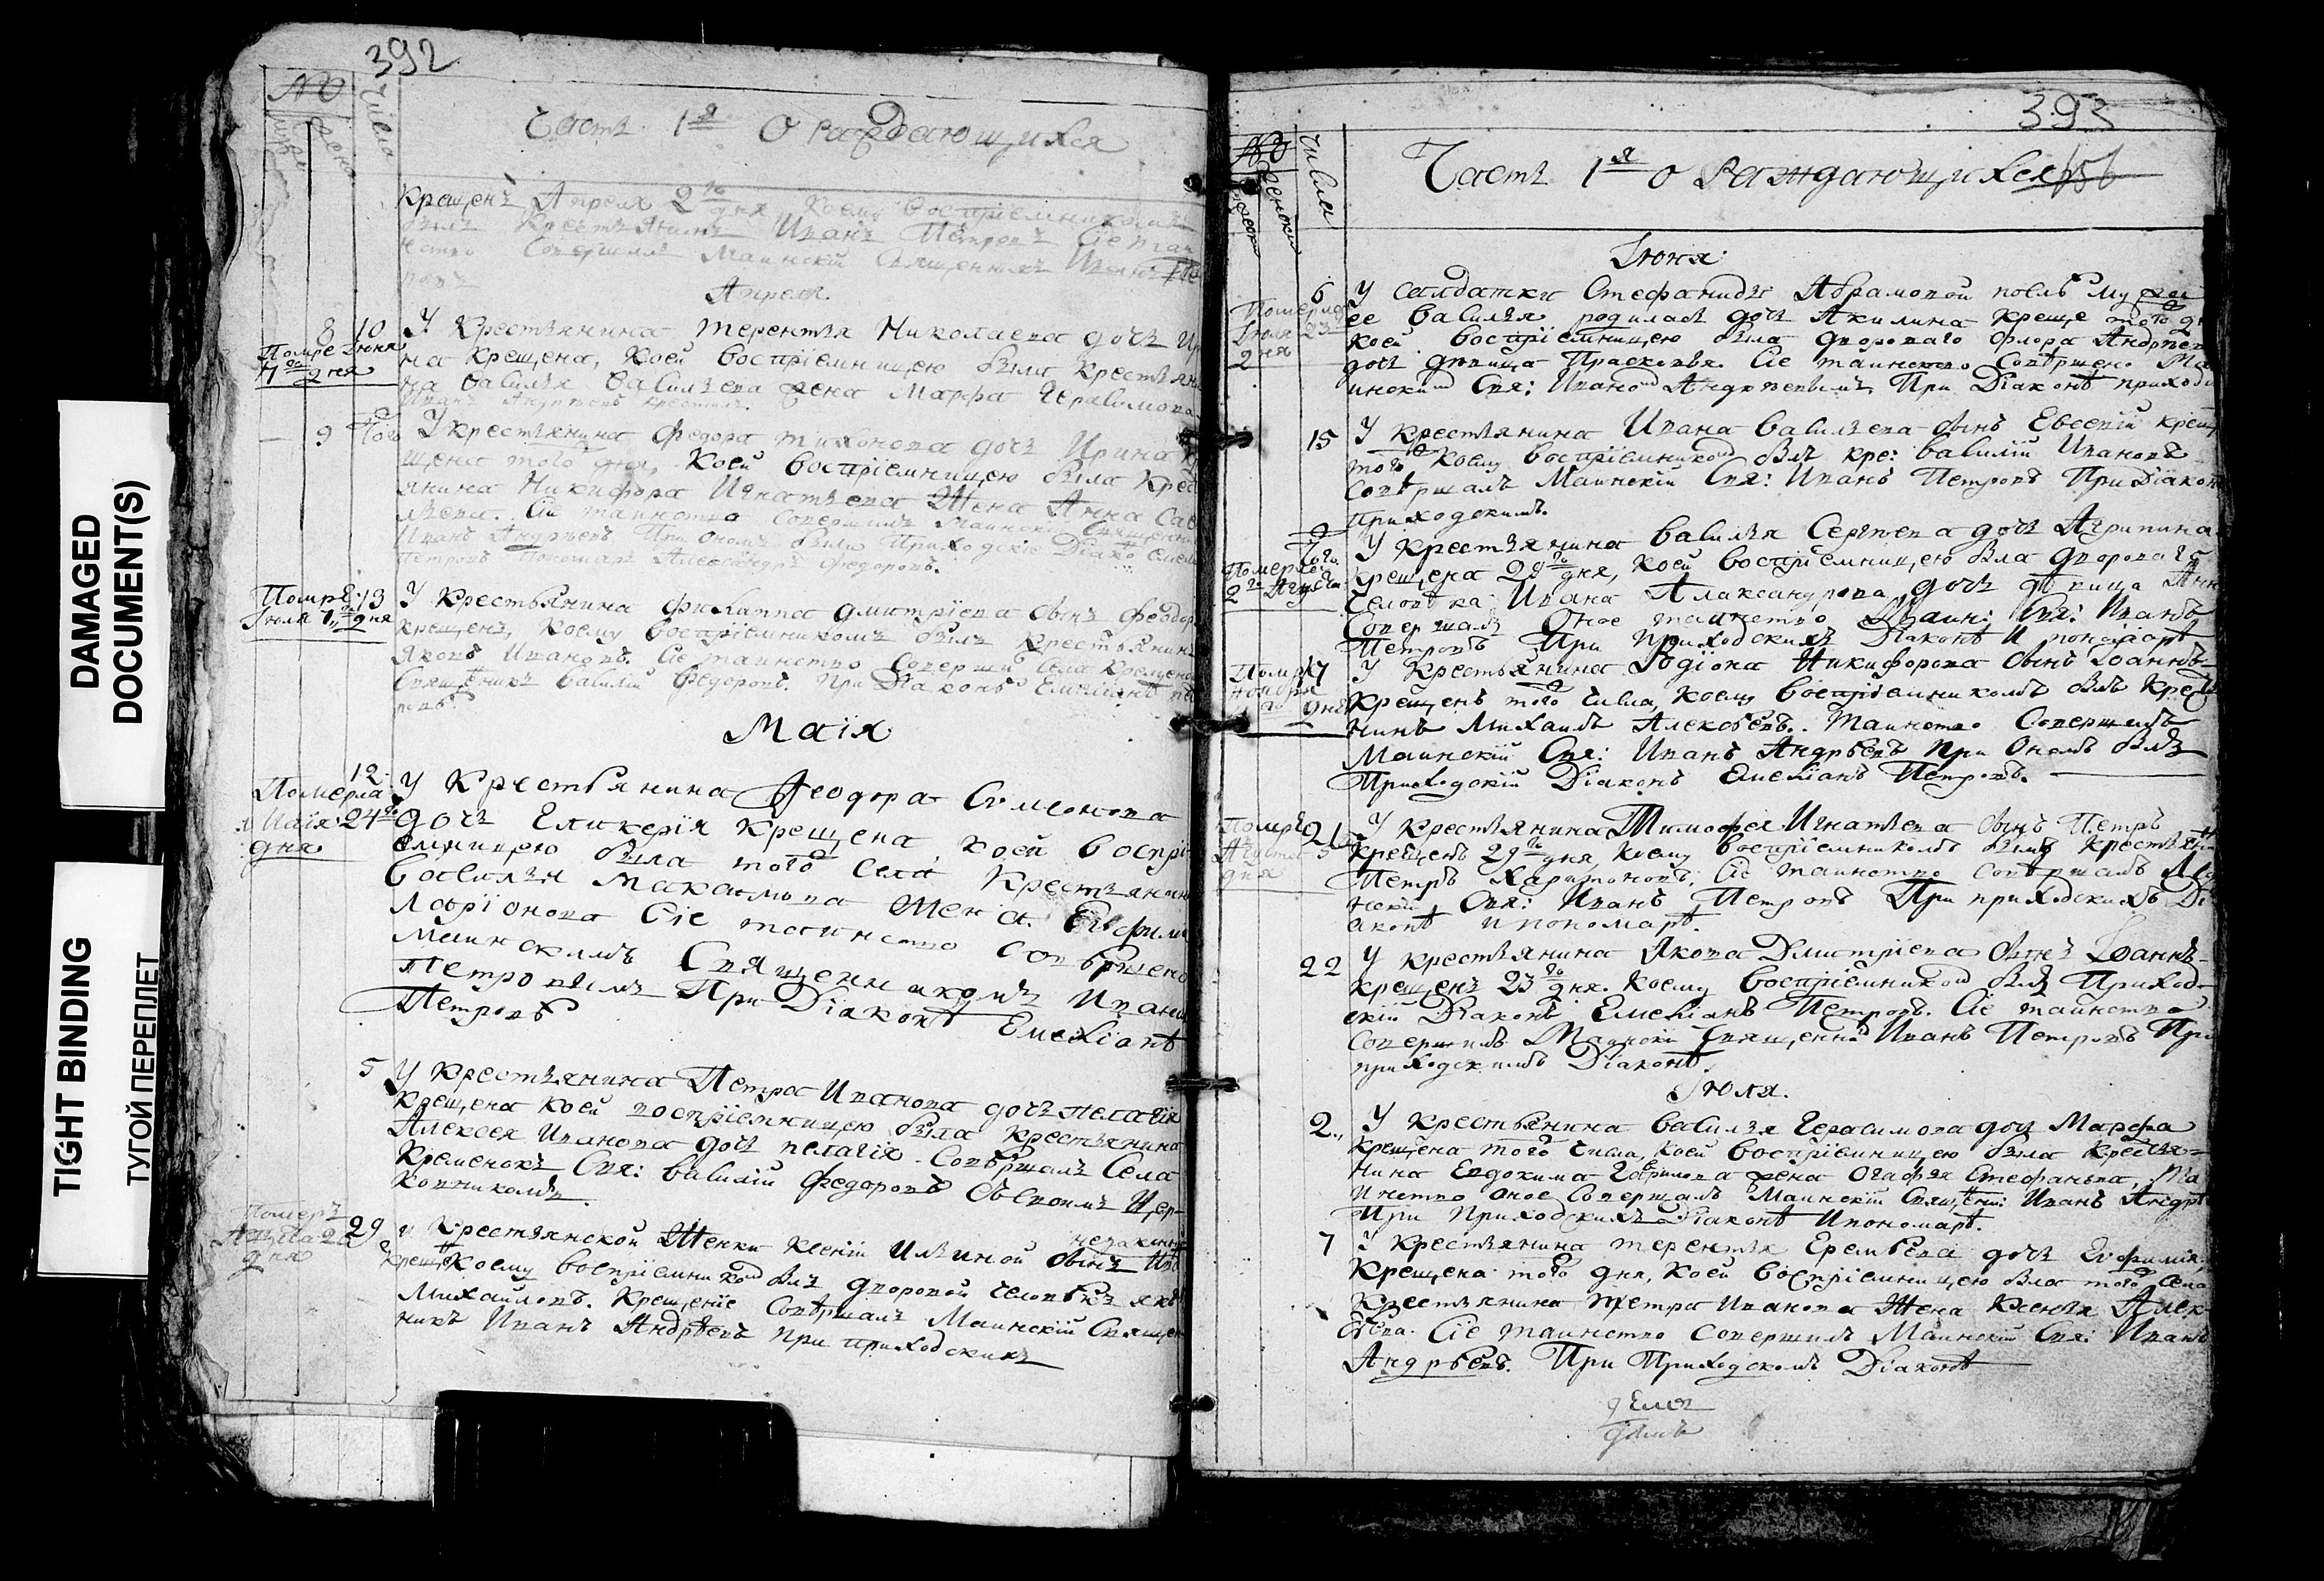 DAMAGED
DOCUMENT(S)
TIGHT BINDING
ТУГОЙ ПЕРЕПЛЕТ
392
№
Числа
Часть 1я О раждающихся
крещенъ Апреля 2го дня, коему воспріемникомъ
былъ крестьянинъ Иванъ Петровъ Сіе таи
нство Совершилъ Маинскій Священникъ Иванъ
Апреля.
8 10 У Крестьянина терентья Николаева дочь Ири
на крещена, коей воспріемницею была крестьяни
на василья васильева жена Марфа Герасимова
Иванъ Андрѣевъ крестилъ.
Помре Іюня
дня
9 того У крестьянина Федора тихонова дочь Ирина кре
щена того дня, коей воспріемницею была крес
янина Никифора Игнатьева Жена Анна Сав
льева. Сіе таинство Совершилъ Маинскій Священни
Иванъ Андрѣевъ При ономъ были Приходскіе Діако Емел
Петровъ Пономарь Александръ Федоровъ.
Помре 13
Іюля 7 дня
У Крестьянина филиппа дмитріева сынъ Феодор
крещенъ, коему воспріемникомъ былъ Крестьянинъ
Яковъ Ивановъ. Сіе таинство Соверши Села Кременок
Священникъ василій Федоровъ. При Діаконѣ Емеліанѣ пет
ровѣ.
Маія
12
Померла
Маія 24го
дня
У Крестьянина Феодора Симеонова
дочь Гликерія Крещена, коей воспрі
емницею была того Села Крестьянин
василья Макаимова Жена Евфими
Ларіонова Сіе таинство Совѣршено
Маинскимъ Священникомъ Иваном
Петровымъ При Діаконѣ Емеліанѣ
Петровѣ
5 У Крестьянина Петра Иванова дочь пелагія
крещена коей воспріемницею была Крестьянина
Алексея Иванова дочь пелагія. Совѣршалъ Села
Кременокъ Свя: василій Федоровъ Съсвоимъ Цер-
ковникомъ.
Померъ
дня
29 у Крестьянской Женки Ксеніи Ильиной незаконный сынъ
крещ, коему воспріемникомъ былъ дворовой человѣкъ яковъ
Михайловъ. Крещеніе Совѣршалъ Маинскій Священ
никъ Иванъ Андрѣевъ при приходскихъ
393
№
Числа
Часть 1я о раждающихся
Іюня
6 У Салдатки Стефаниды Абрамовой послѣ мужа
ее василья родилась дочь Акилина креще того дн
коей воспріемницею была двороваго Флора Андрѣева
дочь дѣвица Прасковья Сіе таинство Совѣршено Ма
инским Свя: Иваном Андрѣевымъ. При Діаконѣ приход
Померла
Іюля 23
дня
15 У Крестьянина Ивана васильева сынъ Евсевій крещ
того коему воспріемником былъ кре: василій Ивановъ
Совѣршалъ Маинскій Свя: Иванъ Петровъ При Діакон
приходскимъ.
того
Померла
2го Августа
У крестьянина василья Сергѣева дочь Агрипина
крещена 29го дня, коей воспріемницею была двороваго
Человѣка Ивана Александрова дочь дѣвица Анн
Совершалъ Оное таинство Маин: Свя: Иванъ
Петровъ При Приходскихъ Діаконѣ и пономарѣ
17
Помре
ноября
дня
У Крестьянина Родіона Никифорова сынъ Іоаннъ
Крещенъ того числа, коему воспріемникомъ былъ Крестья
нинъ Михаилъ Алексѣевъ. Таинство Совершалъ
Маинскій Свя: Иванъ Андрѣевъ при ономъ былъ
Приходскій Діаконъ Емеліанъ Петровъ.
21
Помре
Августа 5
дня
У Крестьянина Тимофея Игнатьева сынъ Петръ
крещенъ 29го дня, коему воспріемникомъ былъ крестьянин
Петръ Харитоновъ. Сіе таинство Совѣршалъ Маи
нскій Свя: Иванъ Петровъ При приходскихъ Ді
аконѣ и пономарѣ.
22 У крестьянина Якова Дмитріева сынъ Іоаннъ
крещенъ 23го дня. коему воспріемником былъ Приход-
скій Діаконъ Емеліанъ Петровъ. Сіе таинство
Совершилъ Маинскій Священни Иванъ Петровъ При
приходскимъ Діаконѣ.
Іюля.
2. У Крестьянина василья Герасимова дочь Марфа
крещена того числа, коей воспріемницею была Крестья-
нина Евдокима Гаврилова жена Агафья Стефанова, Таи
инство оное Совершалъ Маинскій Священ: Иванъ Андрѣ
При Приходскихъ Діаконѣ и пономарѣ.
7 У Крестьянина терентья Еремѣева дочь Евфимія
Крещена того дня, коей воспріемницею была того Села
Крестьянина Петра Иванова Жена Ксенья Алек
сѣева. Сіе таинство Совершилъ Маинскій Свя: Иванъ
Андрѣевъ. При Приходскомъ Діаконѣ